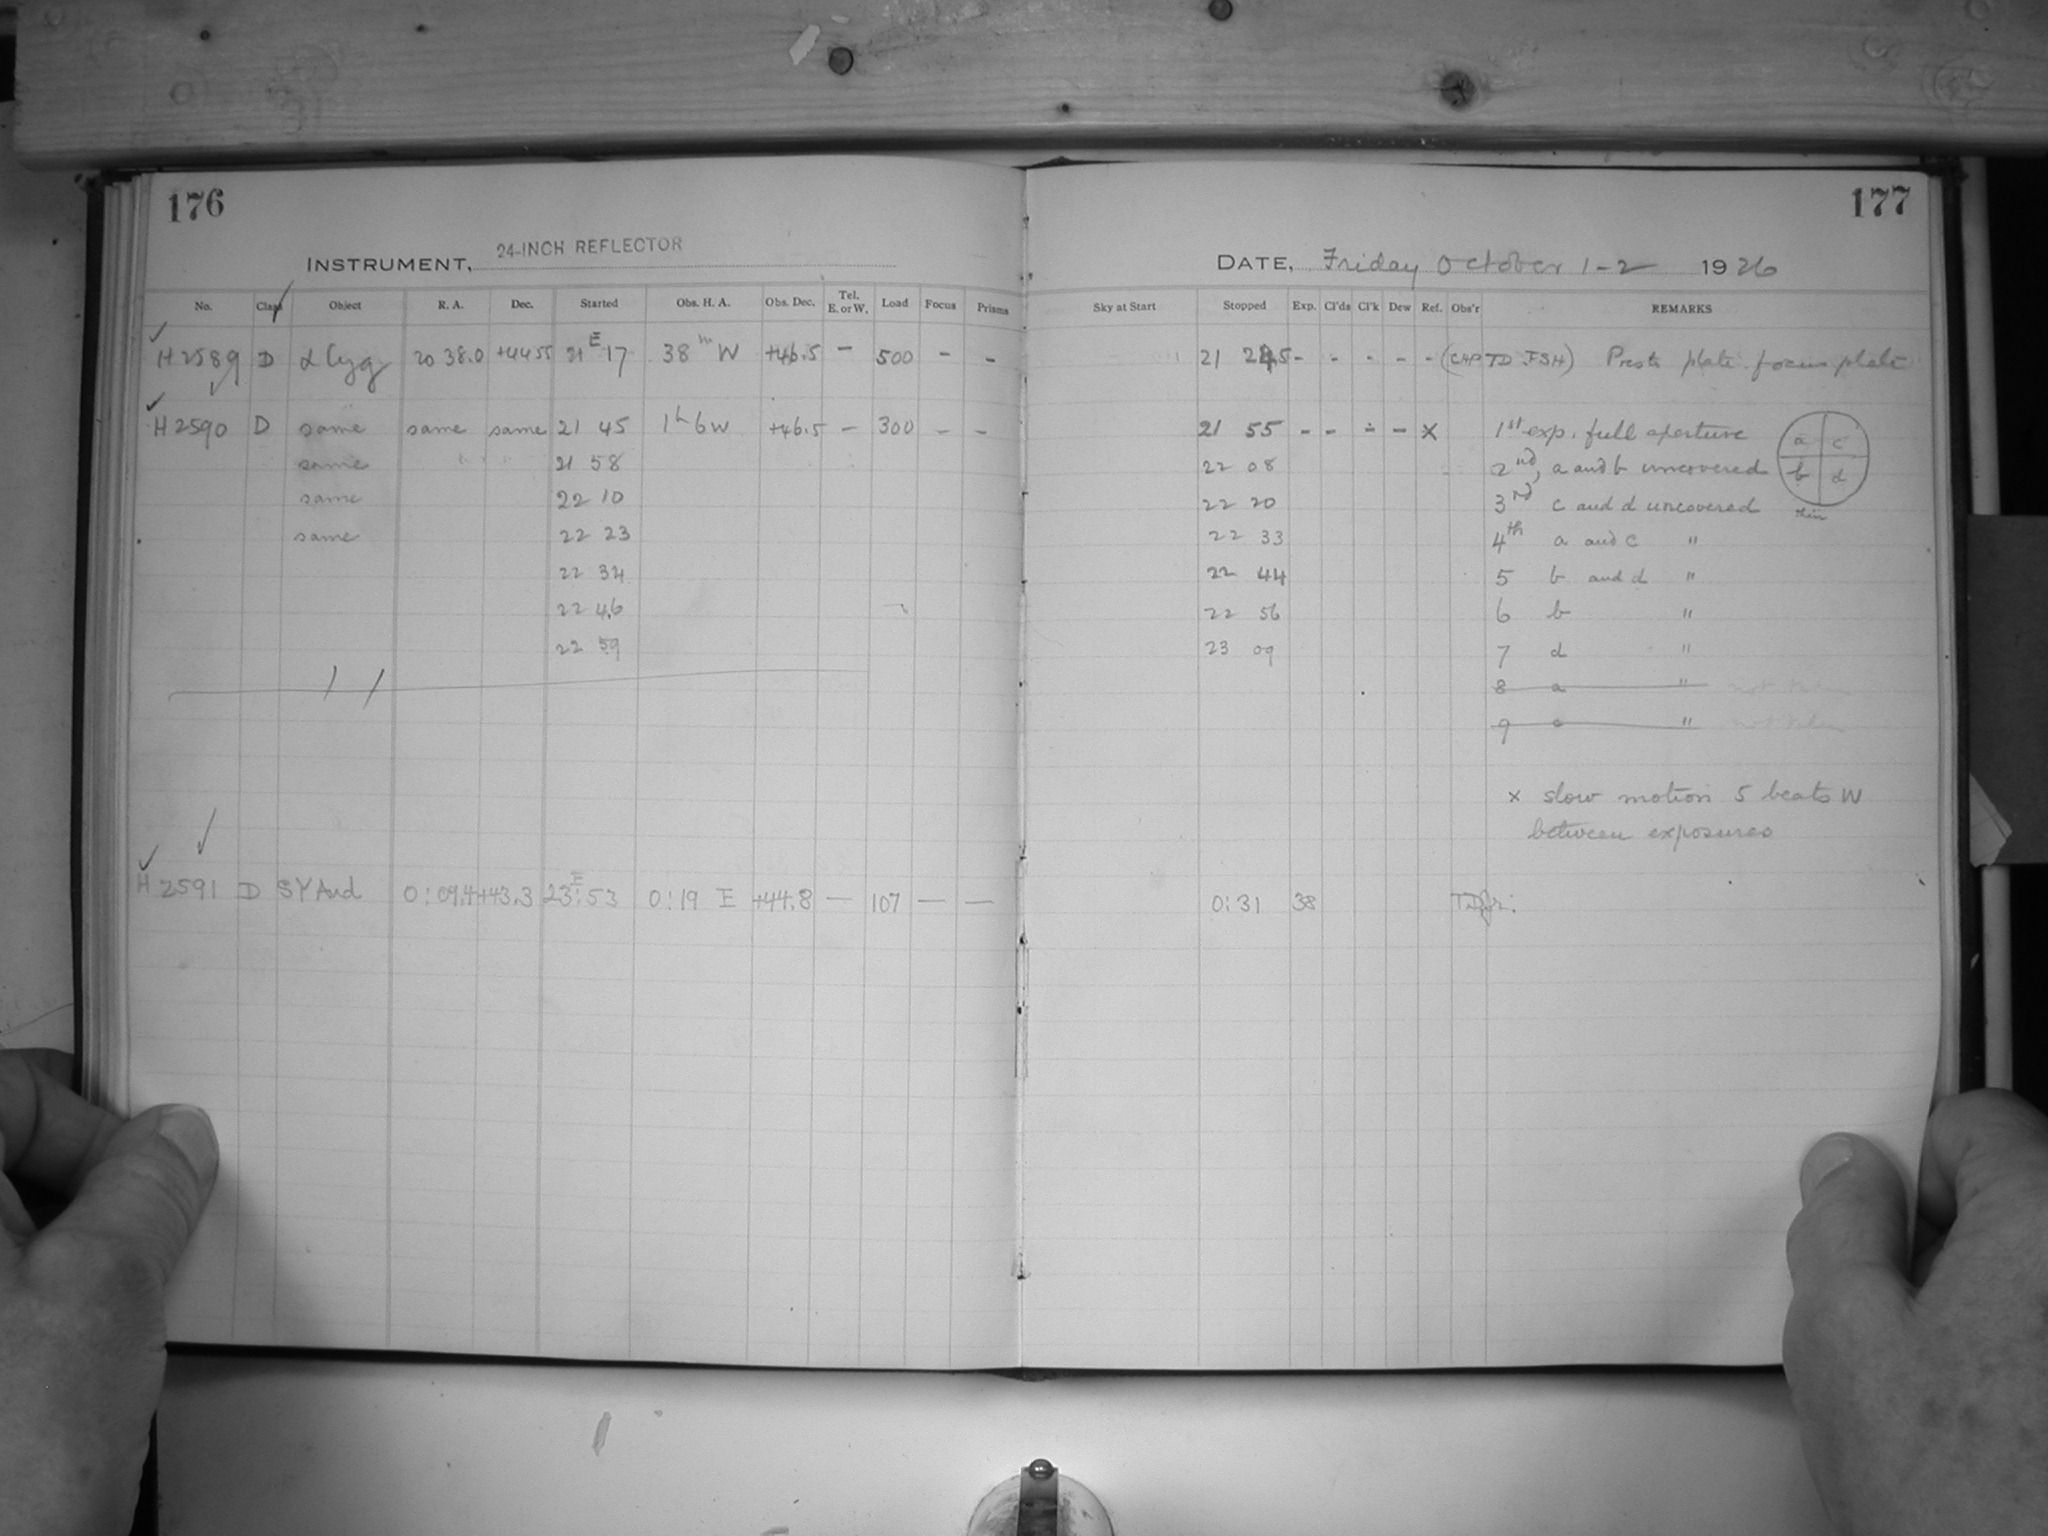 176
177
INSTRUMENT, 24-INCH REFLECTOR
DATE, Friday October 1-2 1926
No. Class Object R. A. Dec. Started Obs. H. A. Obs. Dec. Tel. E. or W. Load Focus Prisms Sky at Start Stopped Exp. Cl'ds Cl'k Dew Ref. Obs'r REMARKS
H 2589 D α Cyg 20 38.0 +44 55 21 E 17 38 m W +46.5 - 500 - - 21 - - - - - (CHP TD FSH) plate focus plate
H 2590 D same same same 21 45 1h 6 W +46.5 - 300 - - 21 55 - - - - X 1st exp. full aperture
same 21 58 22 08 2nd, a and b uncovered
same 22 10 22 20 3rd c and d uncovered
same 22 23 22 33 4th a and c "
22 34 22 44 5 b and d "
22 46 22 56 6 b "
22 59 23 09 7 d "
8 a " not taken
9 c " not taken
a c
b d
x slow motion 5 beats W
between exposures
H 2591 D SY And 0:09.4 +43.3 23:53 E 0:19 E +44.8 — 107 — — 0:31 38